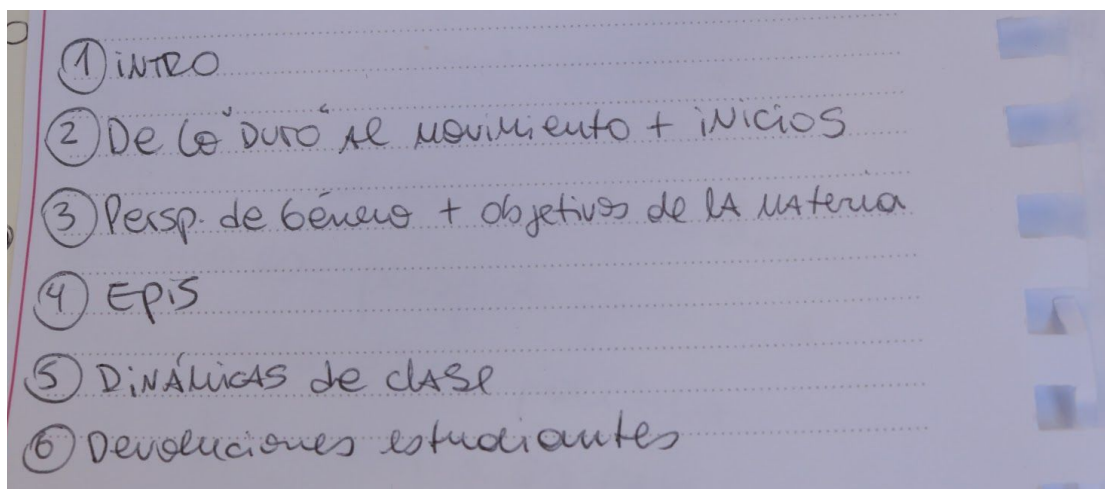 ① iNTRO
② De lo "DURO" AL MOVIMIENTO + iNiCiOS
③ Persp. de Género + objetivos de LA MAteria
④ EPiS
⑤ DiNÁMiCAS de clASe
⑥ Devoluciones estudiantes